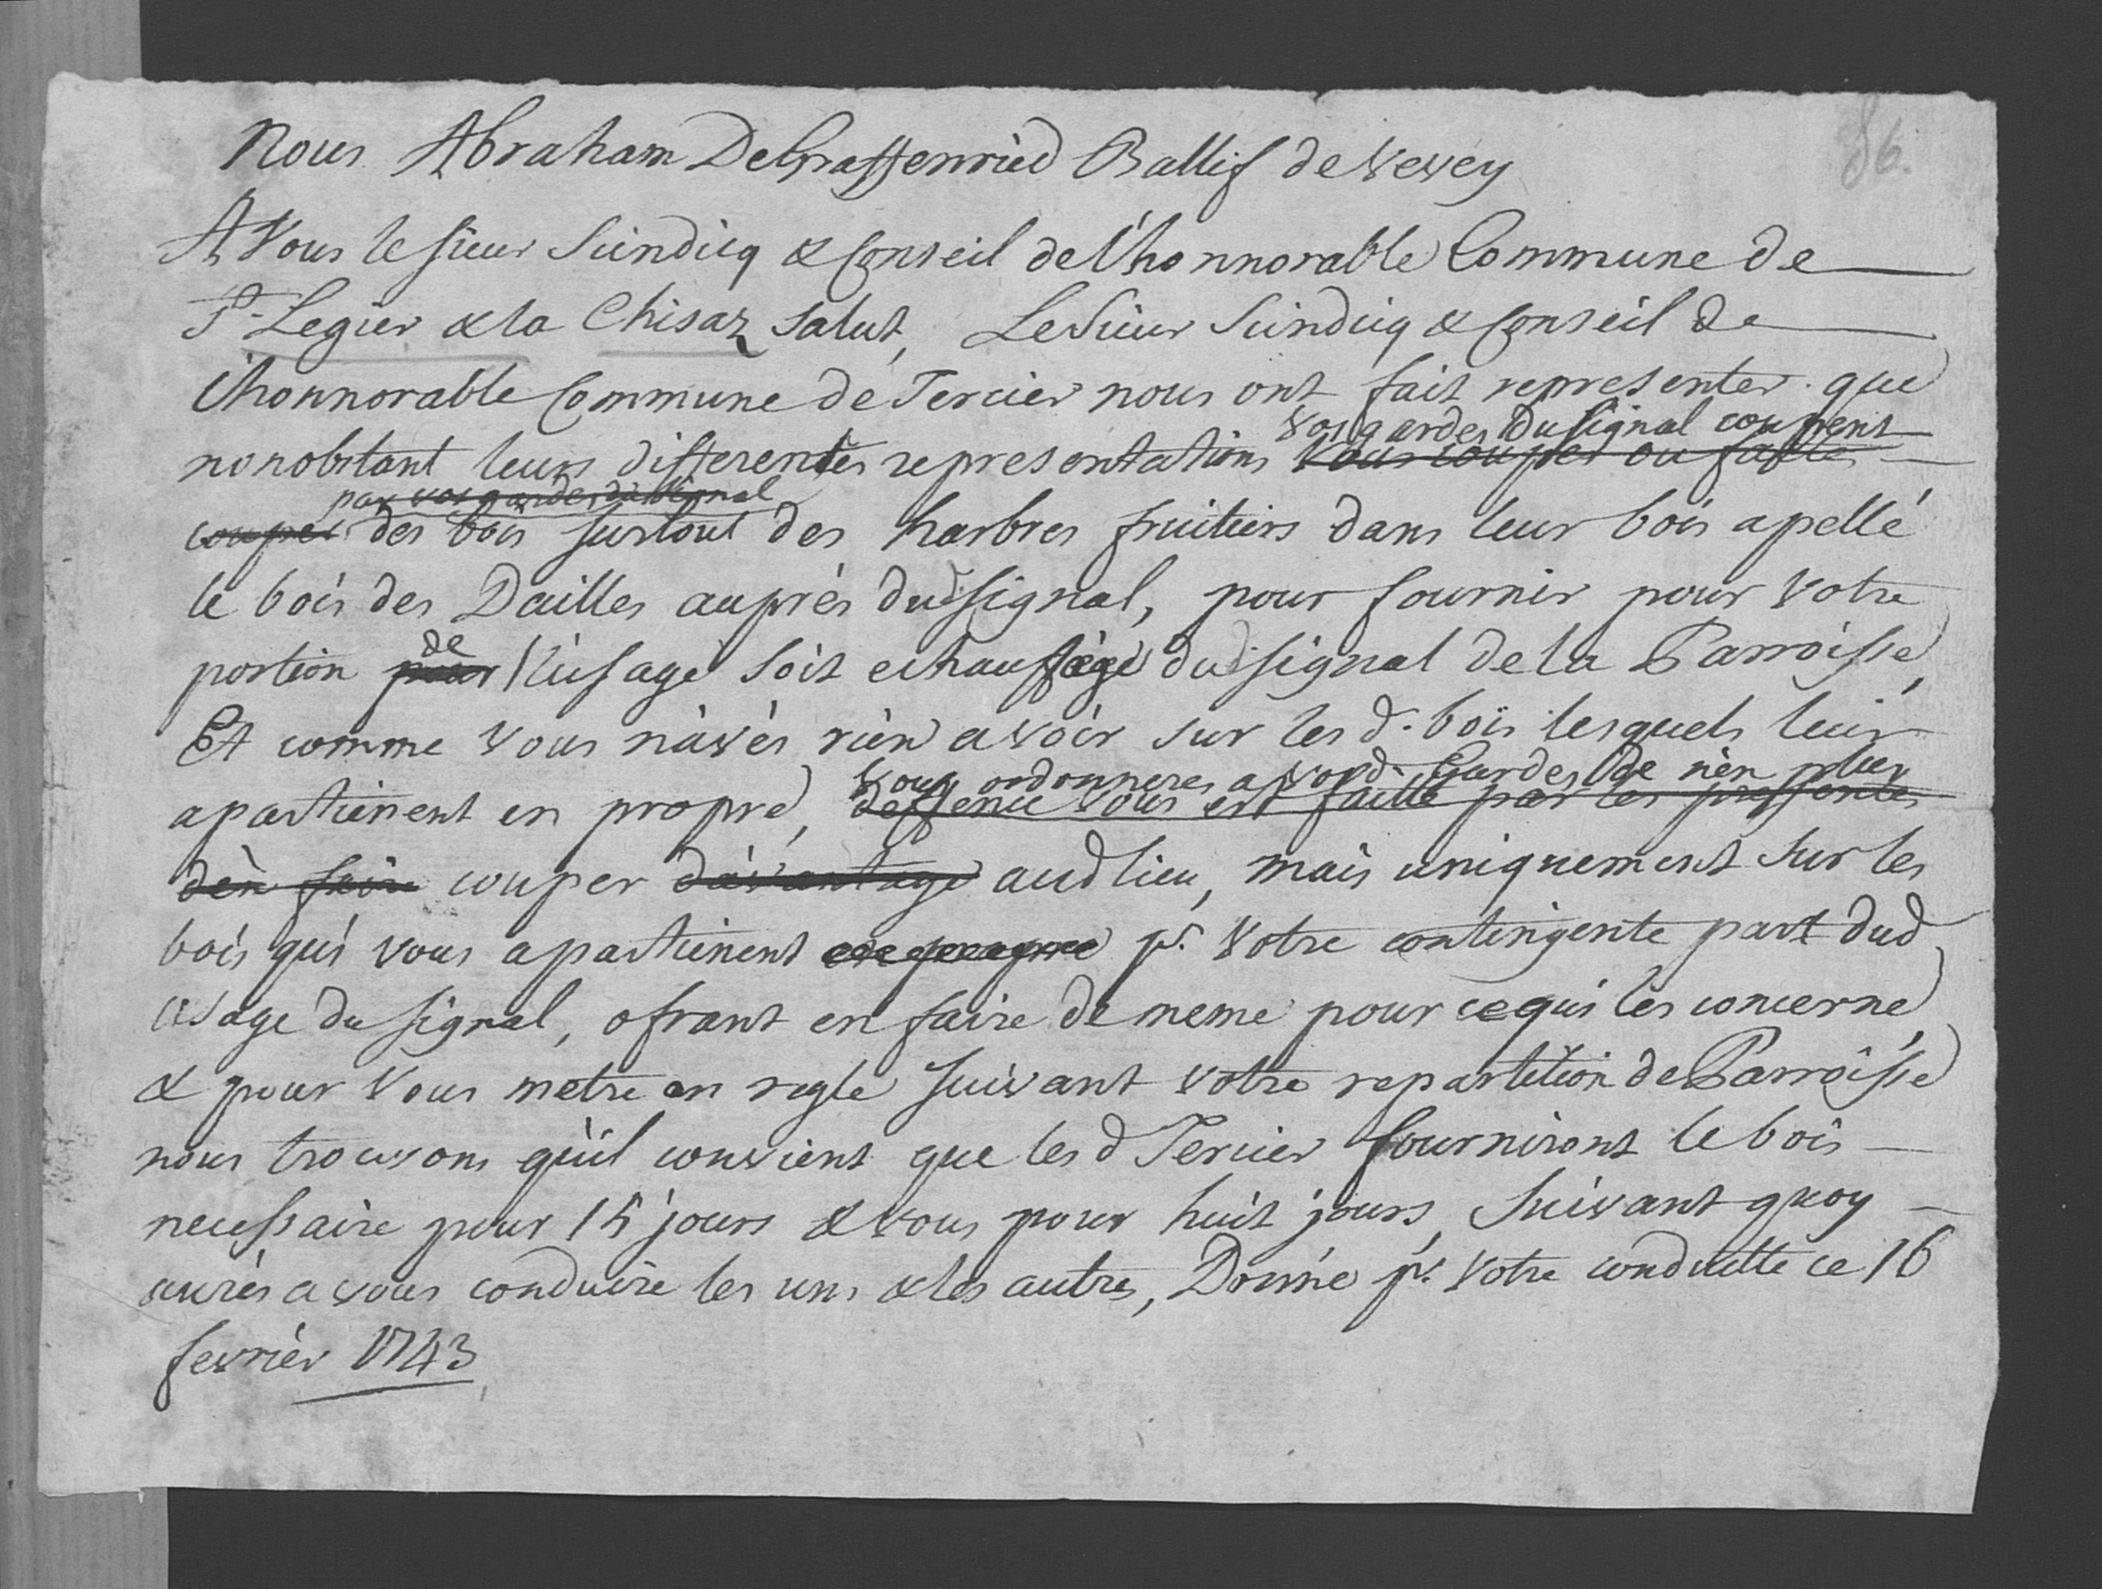 86.
Nous Abraham DeGraffenried Ballif de Vevey
A Vous le sieur Scindicq & Conseil de l'honnorable Commune de
St. Legier & la Chisaz salut, Le Sieur Scindicq & Conseil de
l'honnorable Commune de Tercier nous ont fait representer que
vos gardes du signal coupent
nonobstant leurs differentes representations vous coupes ou faites
par vos gardes du signal
couper des bois surtout des harbres fruitiers dans leur bois apellé
le bois des Dailles auprés dud signal, pour fournir pour votre
de
portion pour l'usage soit echauffage dud signal de la Parroisse,
Et comme vous n'avés rien a voir sur les d. bois lesquels leur
vous ordonneres a vosd. Gardes de n'en plus
apartienent en propre, deffence vous est faitte par les pressentes
d'en faire couper d'avantage aud lieu, mais uniquement sur les
bois qui vous apartienent en propre pr. votre contingente part dud
usage du signal, ofrant en faire de meme pour ce qui les concerne,
& pour vous metre en regle suivant votre repartition de Parroisse
nous trouvons qu'il convient que les d Tercier fourniront le bois
necessaire pour 15 jours & vous pour huit jours, suivant quoy
aurés a vous conduire les uns & les autres, Donné pr. votre conduitte ce 16
fevrier 1743